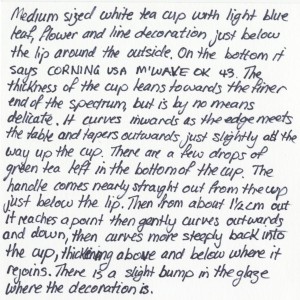 Medium sized white tea cup with light blue
leaf, flower and line decoration just below
the lip around the outside. On the bottom it
says CORNING USA M'WAVE OK 43. The
thickness of the cup leans towards the finer
end of the spectrum, but is by no means
delicate. It curves inwards as the edge meets
the table and tapers outwards just slightly all the
way up the cup. There are a few drops of
green tea left in the bottom of the cup. The
handle comes nearly straight out from the cup
just below the lip. Then from about 1½cm out
it reaches a point then gently curves outwards
and down, then curves more steeply back into
the cup, thickening above and below where it
rejoins. There is a slight bump in the glaze
where the decoration is.